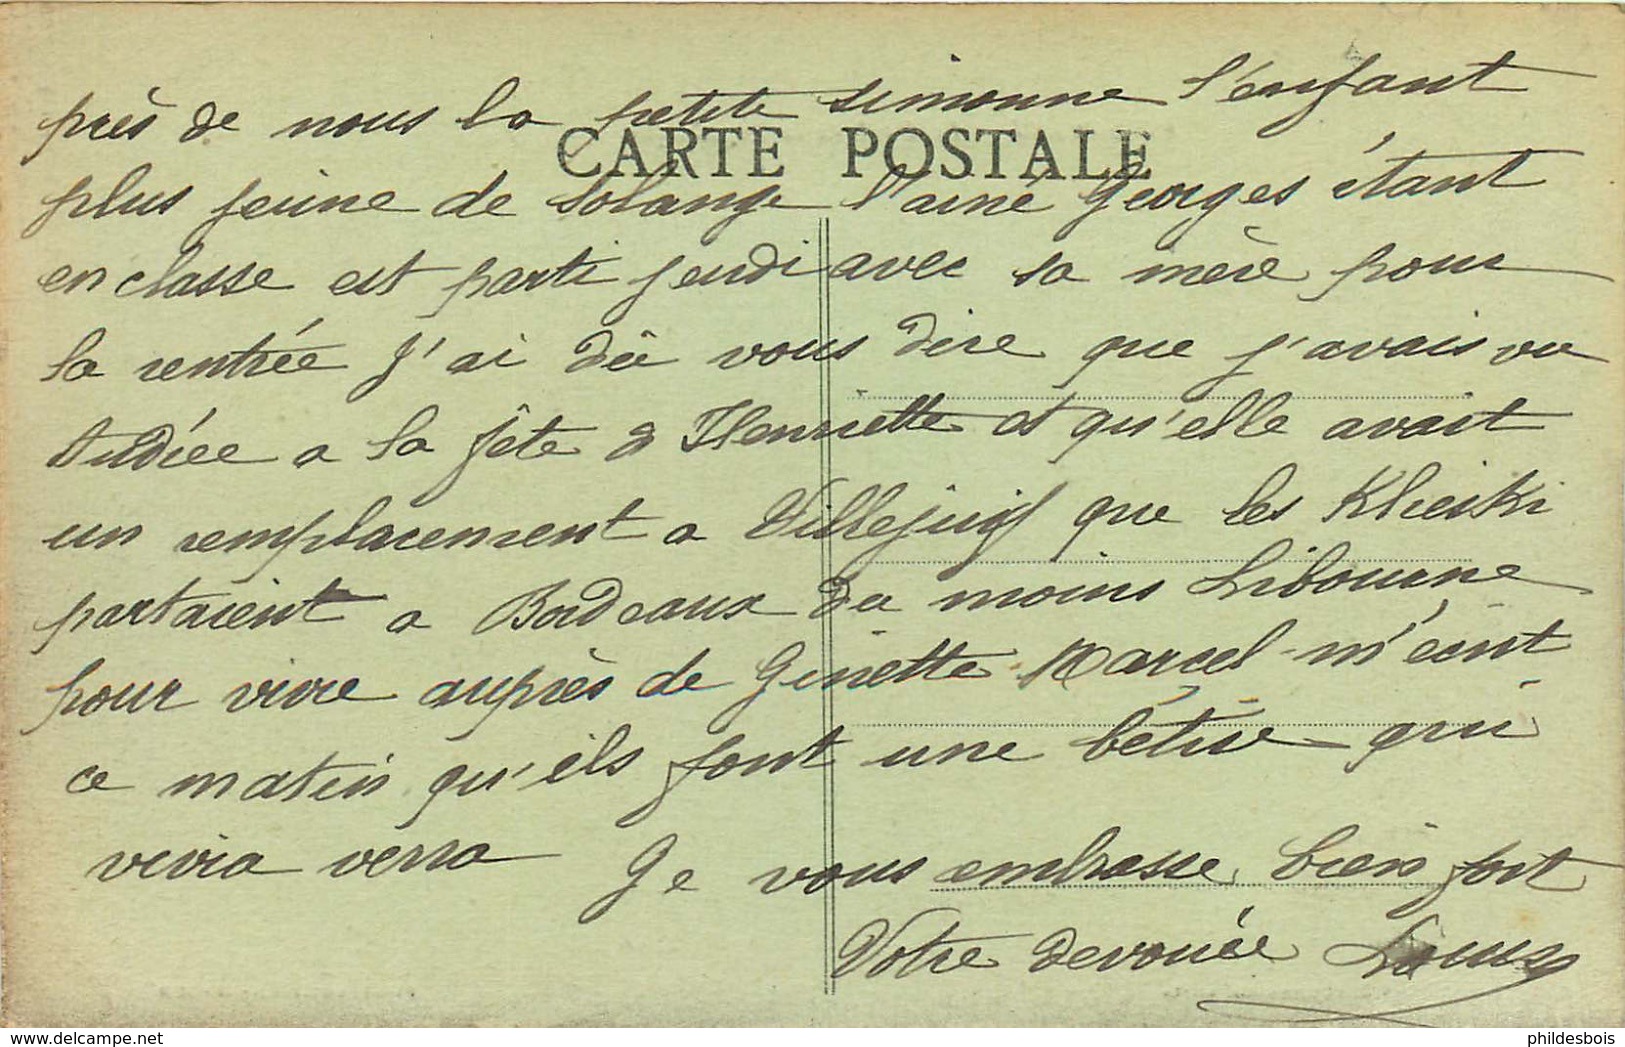 près de nous la petite simonne l'enfant
CARTE POSTALE
plus jeune de Solange l'ainé Georges étant
en classe est parti jeudi avec sa mère pour
la rentrée J'ai dû vous dire que j'avais vu
Andrée a la fête d'Henriette et qu'elle avait
un remplacement a Villejuif que les
partaient a Bordeaux du moins Libourne
pour vivre auprès de Ginette Marcel m'ecrit
ce matin qu'ils font une bétise qui
vivra verra Je vous embrasse bien fort
Votre devouée
www.delcampe.net
phildesbois